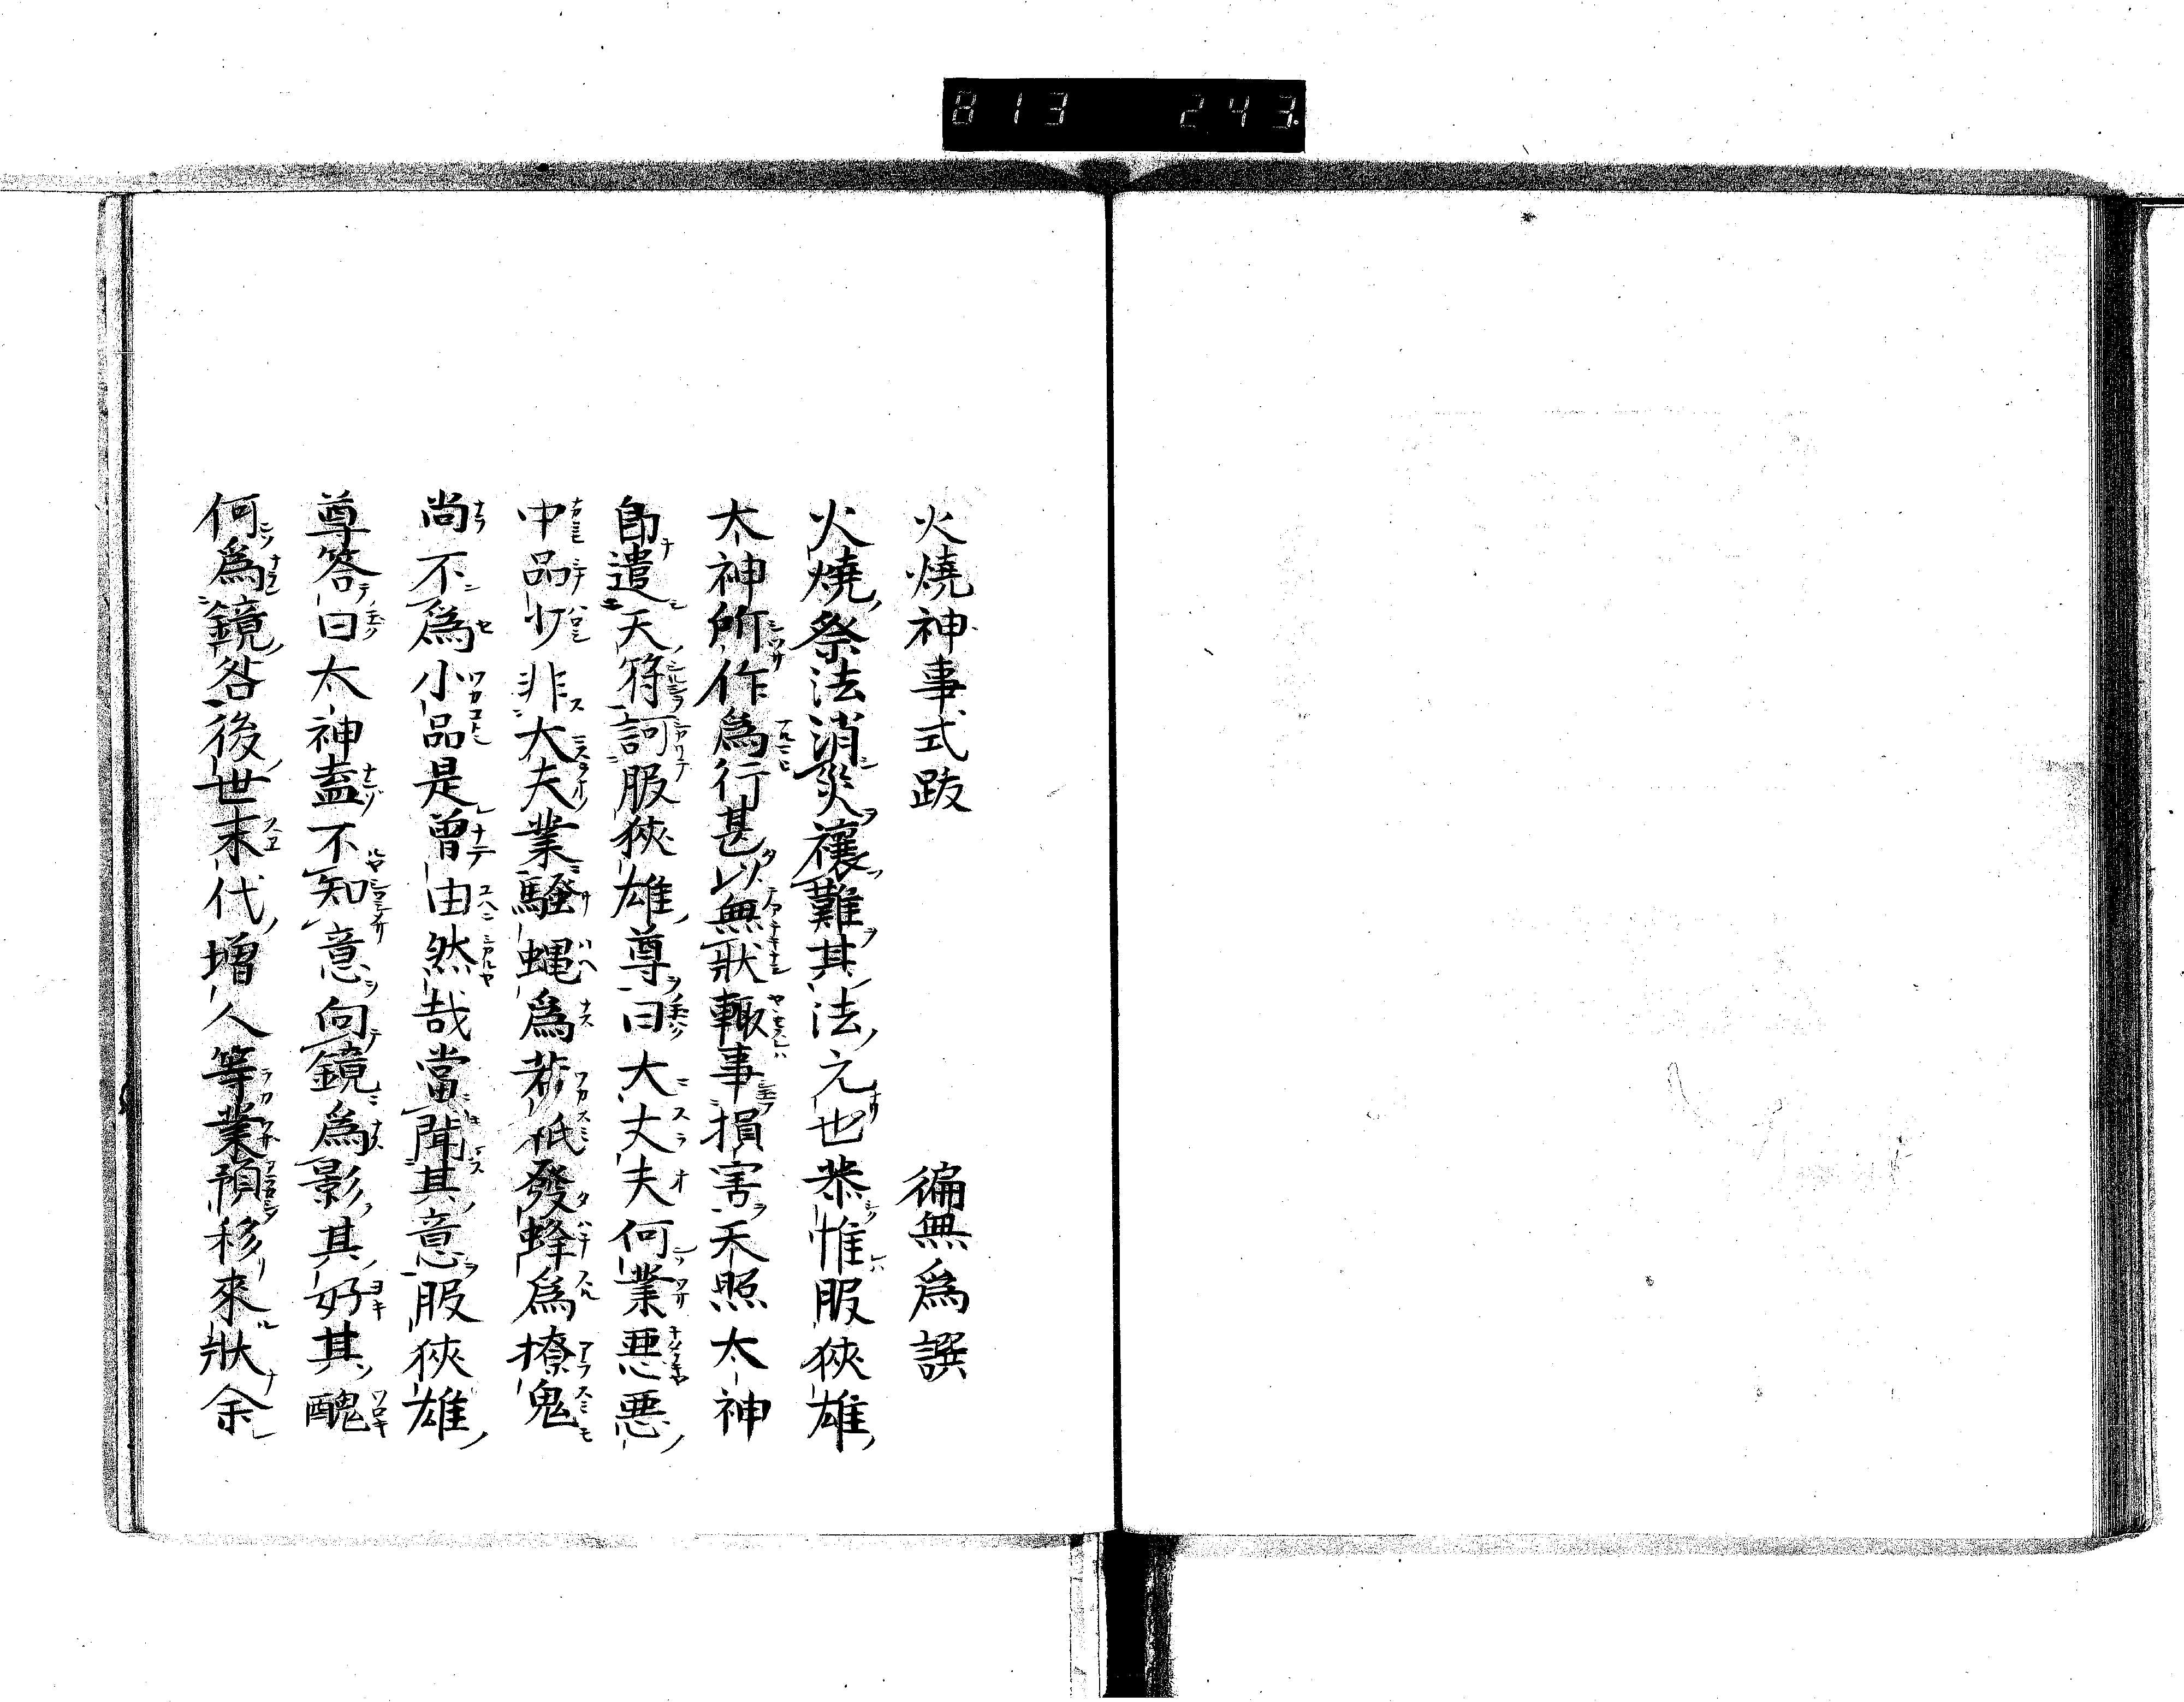 813 243
火燒神事式跋 徧無為譔
火燒祭法消災禳難其法元也恭惟服狹雄
太神所作為行甚以無狀輙事損害天照太神
即遣天符訶服狹雄尊曰大丈夫何業悪悪
中品少非大夫業騷蝿為若祇發蜂為撩鬼
尚不為小品是曾由然哉當聞其意服狹雄
尊答曰太神盍不知意向鏡為影其好其醜
何為鏡咎後世末代增人等業預移來狀余